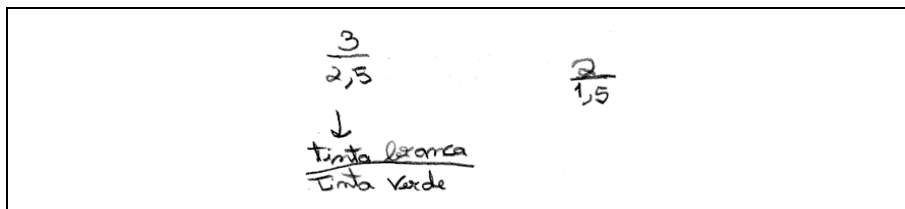 3
2,5
2
1,5
↓
tinta branca
Tinta verde